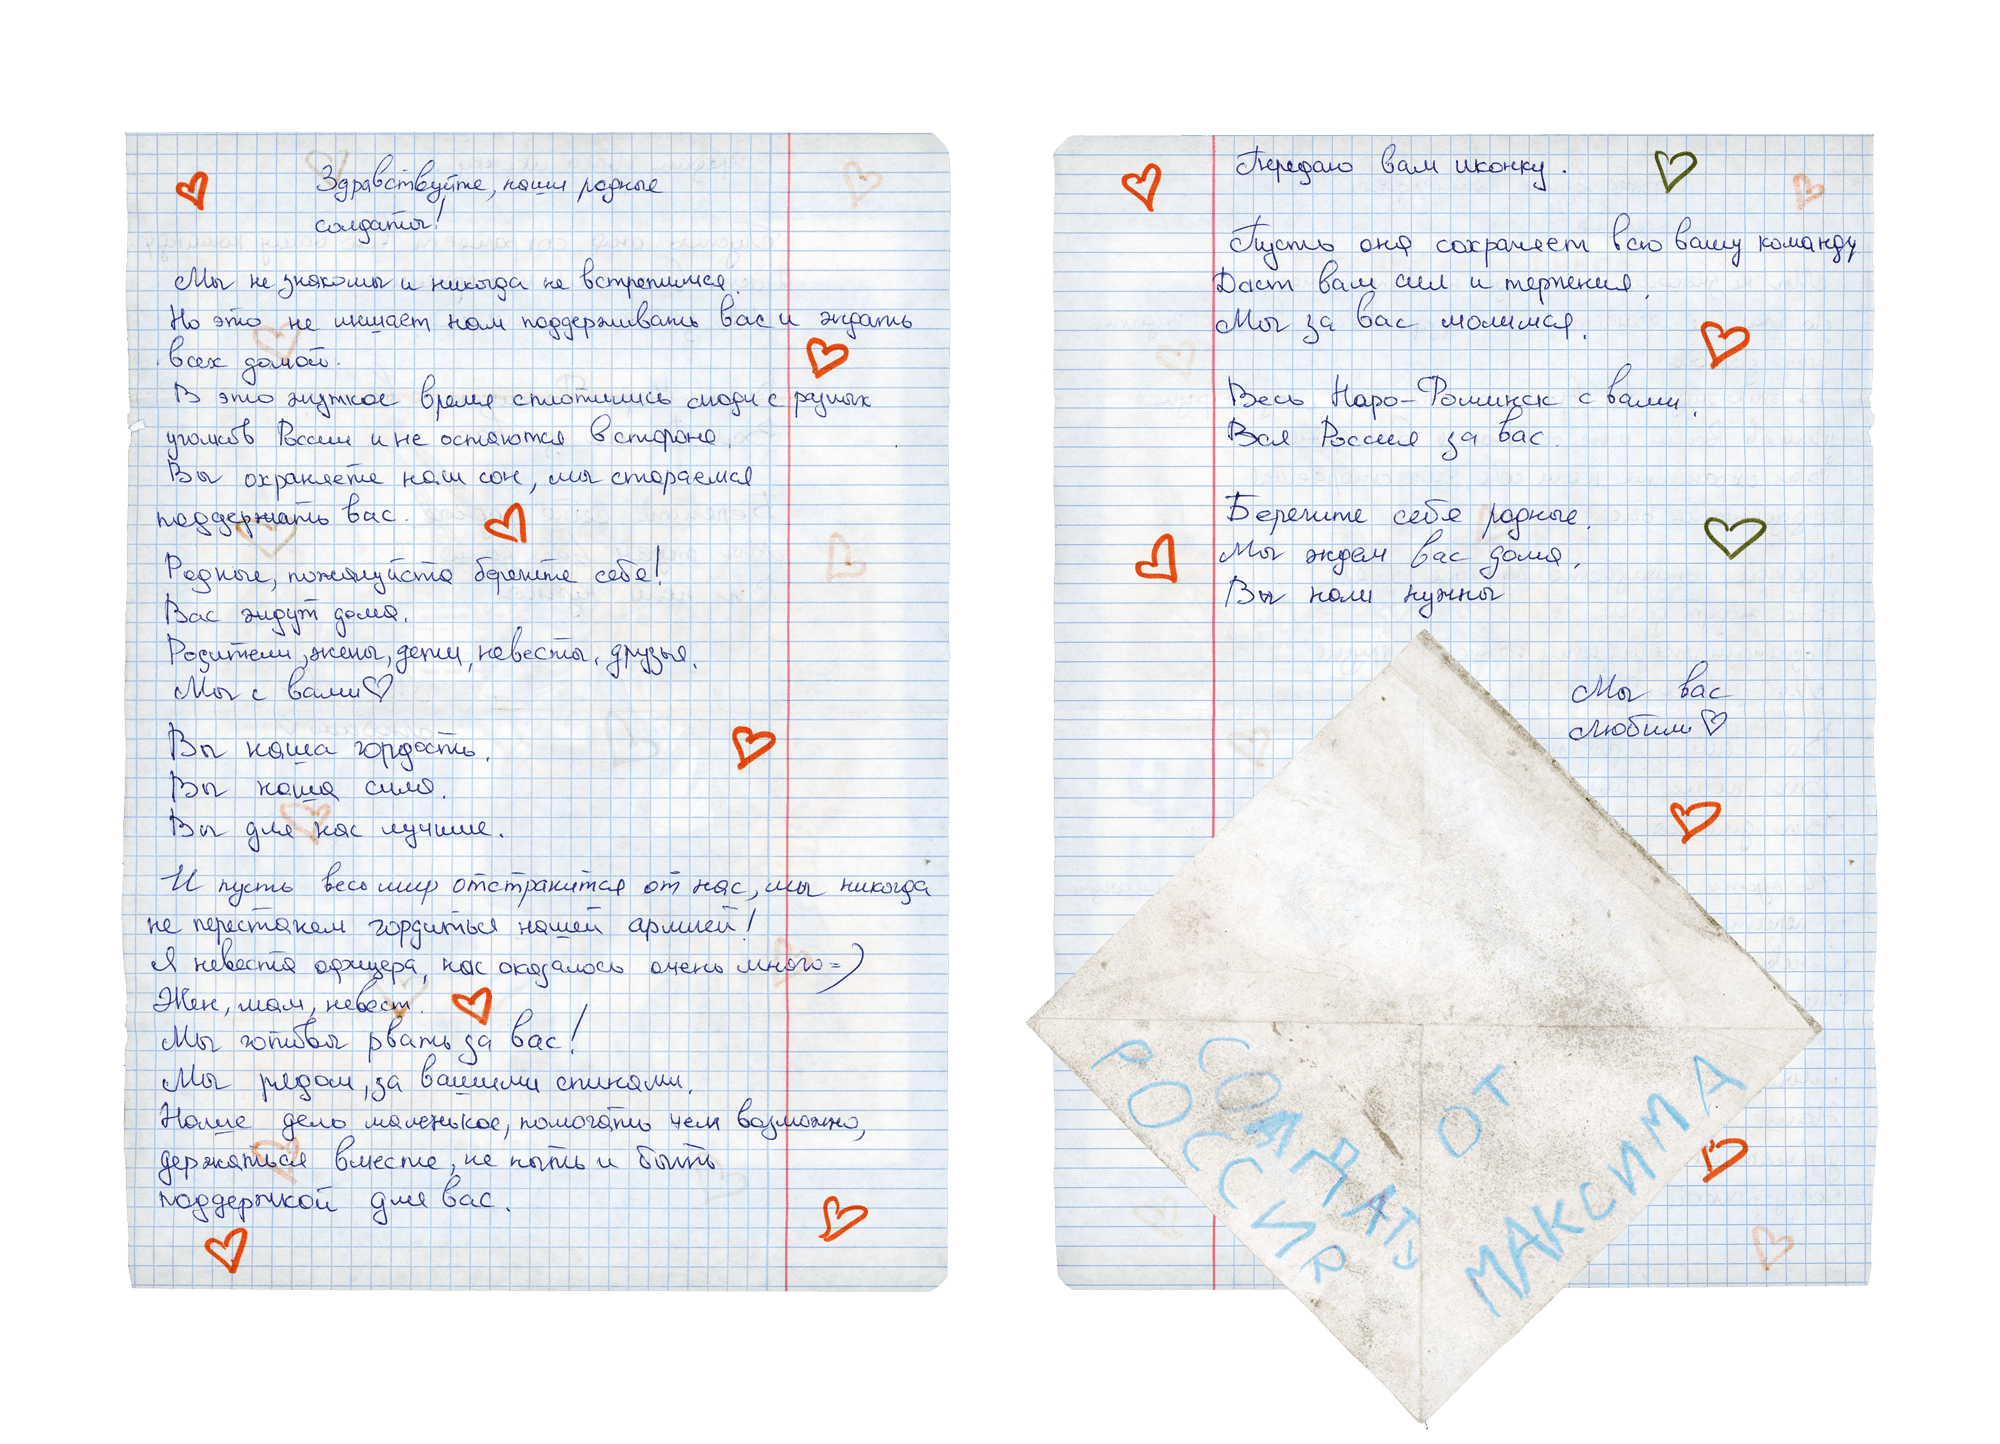 Здравствуйте, наши родные
солдаты!
Мы не знакомы и никогда не встретимся.
Но это не мешает нам поддерживать вас и ждать
всех домой.
В это жуткое время сплотились люди с разных
уголков России и не остаются в стороне.
Вы охраняете наш сон, мы стараемся
поддержать вас.
Родные, пожалуйста берегите себя!
Вас ждут дома.
Родители, жены, дети, невесты, друзья.
Мы с вами♡
Вы наша гордость.
Вы наша сила.
Вы для нас лучшие.
И пусть весь мир отстранится от нас, мы никогда
не перестанем гордиться нашей армией!
Я невеста офицера, нас оказалось очень много=)
Жен, мам, невест.
Мы готовы рвать за вас!
Мы рядом, за вашими спинами.
Наше дело маленькое, помогать чем возможно,
держаться вместе, не ныть и быть
поддержкой для вас.
Передаю вам иконку.
Пусть она сохраняет всю вашу команду
Даст вам сил и терпения.
Мы за вас молимся.
Весь Наро-Фоминск с вами.
Вся Россия за вас.
Берегите себя родные.
Мы ждем вас дома.
Вы нам нужны
Мы вас
любим♡
СОЛДАТУ
РОССИЯ
ОТ
МАКСИМА